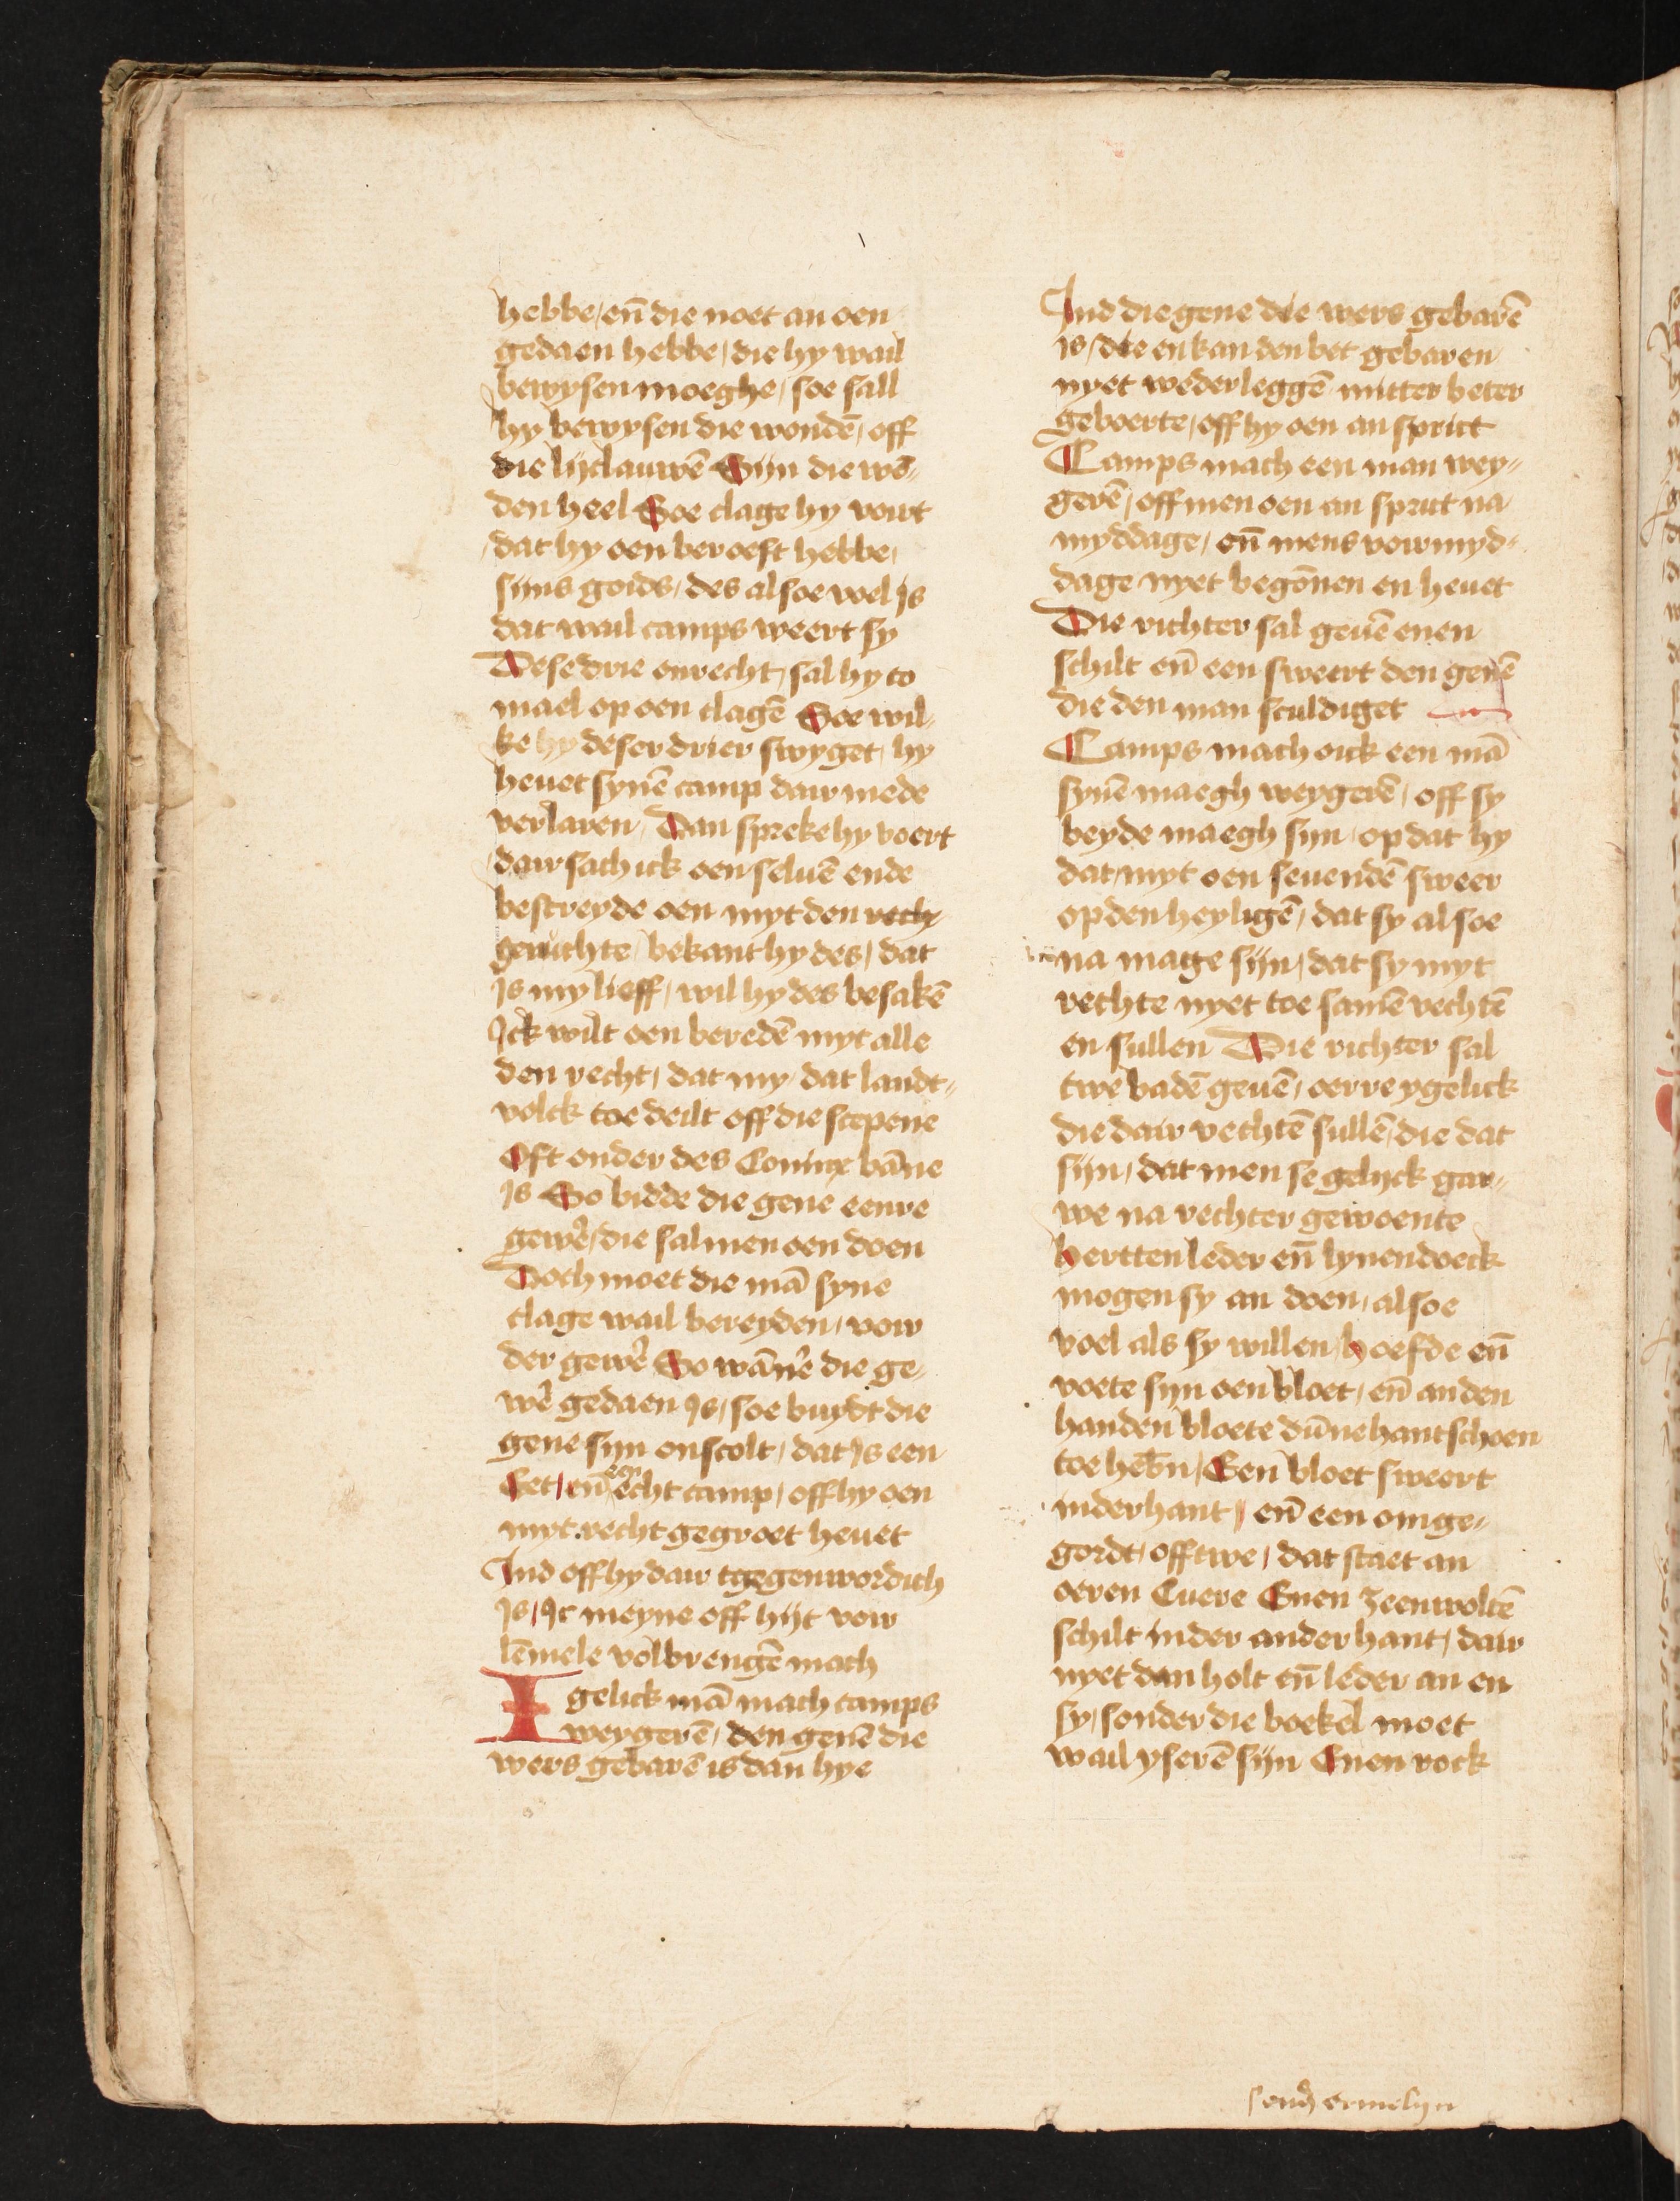 hebbe/ en̄ die noet an oen
gedaen hebbe/ die hy wail
bewysen moeghe/ soe sall
hy bewysen die wondē/ off
die lijclauwē Sijn die wō-
den heel Soe clage hy vort
dat hy oen beroeft hebbe/
sijns goids/ des alsoe voel Js
dat wail camps weert sy
Dese drie onrecht/ sal hy to
mael op oen clagē Soe wil-
ke hy deser drier swyget/ hy
heuet synē camp dair mede
verlaren/ Dan spreke hy voert
dair sach ick oen seluē ende
bestreyde oen myt den rech
geruchte/ bekant hy des/ dat
Js my lieff/ wil hy des besakē
Jck wilt oen beredē myt alle
den recht/ dat my dat landt-
volck toe deilt off die scepene
Oft onder des Coninx bāne
Js So bidde die gene eenre
gewer̄/ die salmen oen doen
Doch moet die mā syne
clage wail bereyden/ vor
der gewer̄ So wāner̄ die ge-
wer̄ gedaen Js/ soe buydt die
gene sijn onscolt/ dat Js een
Eet/ en̄ een echt camp/ off hy oen
myt recht gegroet heuet
Jnd off hy dair tgegenwordich
Js/ Jc meyne off hijt vor
lēmele volbrengē mach
Igelick mā mach camps
weygerē/ den genē die
wers gebarē is dan hye
Jnd die gene die wers gebarē
is/ die en kan den bet gebaren
nyet wederleggē mitter beter
geboerte/ off hy oen an sprict
Camps mach een man wey-
gerē/ off men oen an sprict na
myddage/ en̄ mens vor myd-
dage nyet begōnen en heuet
Die richter sal geuē enen
schilt en̄ een sweert den genē
die den man sculdiget
Camps mach oick een mā
synē maegh weygerē/ off sy
beyde maegh sijn/ op dat hy
dat myt oen seuendē sweer
op den heyligē/ dat sy alsoe
na mage sijn/ dat sy myt
rechte nyet toe samē vechtē
en sullen Die richter sal
twe badē geuē/ oerre ygelick
die dair vechtē sullē/ die dat
sijn/ dat men se gelijck gar-
we na rechter gewoente
hertten leder en̄ lynendoeck
mogen sy an doen/ alsoe
voel als sy willen/ hoefde en̄
voete sijn oen bloet/ en̄ an den
handen bloete dūne hantschoen
toe heb̄n/ Een bloet sweert
inder hant/ en̄ een omge-
gordt/ off twe/ dat staet an
oeren Cuere Enen zeenwoltē
schilt inder ander hant/ dair
nyet dan holt en̄ leder an en
sy/ sonder die boekel moet
wail yserē sijn Enen rock
sond̄ ermelyn